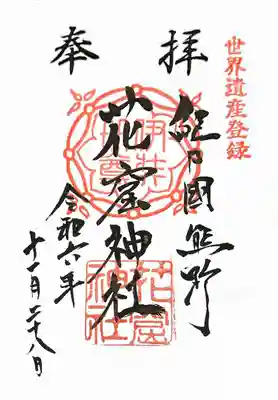 世界遺産登録
奉拝
紀乃國熊野
花窟神社
令和六年
十一月二十八日
花窟神社